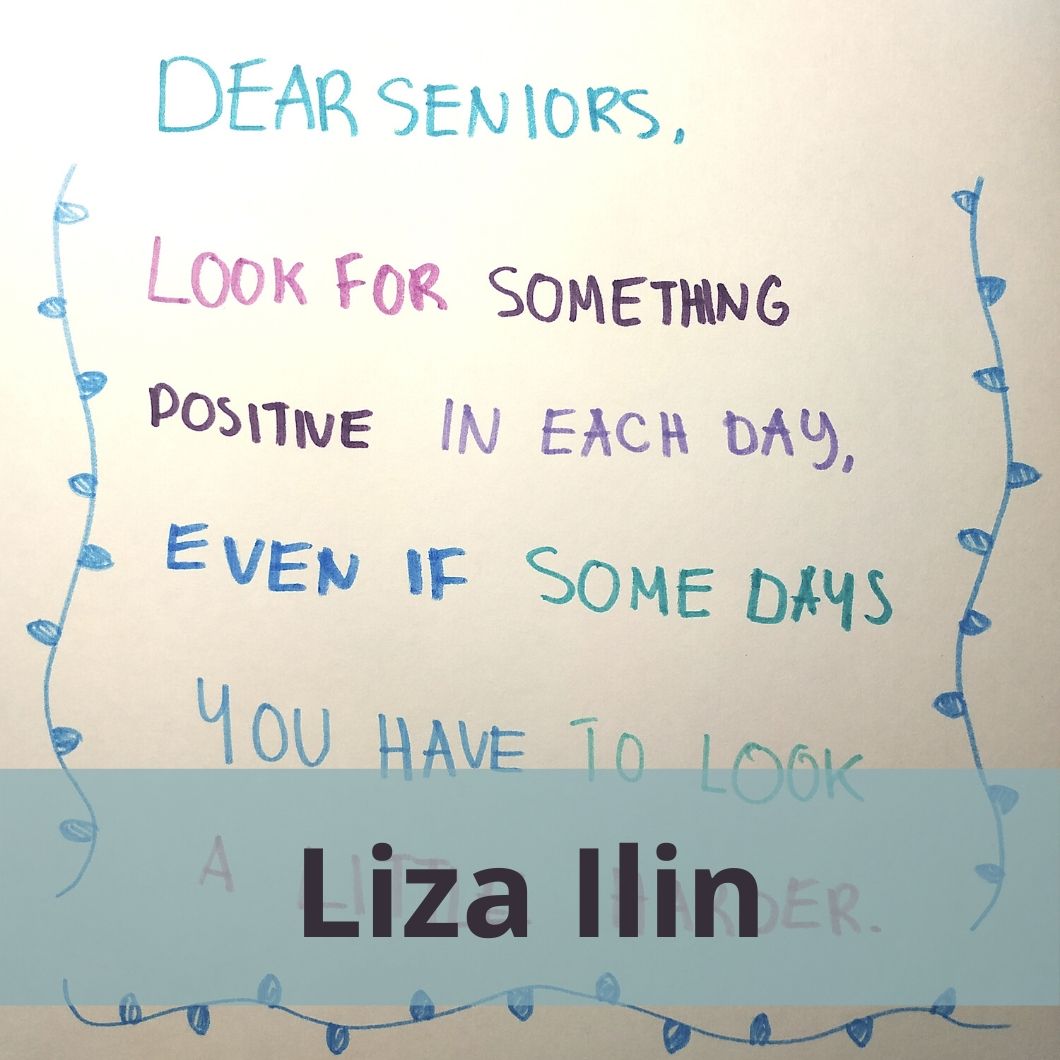 DEAR SENIORS,
LOOK FOR SOMETHING
POSITIVE IN EACH DAY,
EVEN IF SOME DAYS
YOU HAVE TO LOOK
A LITTLE HARDER.
Liza Ilin